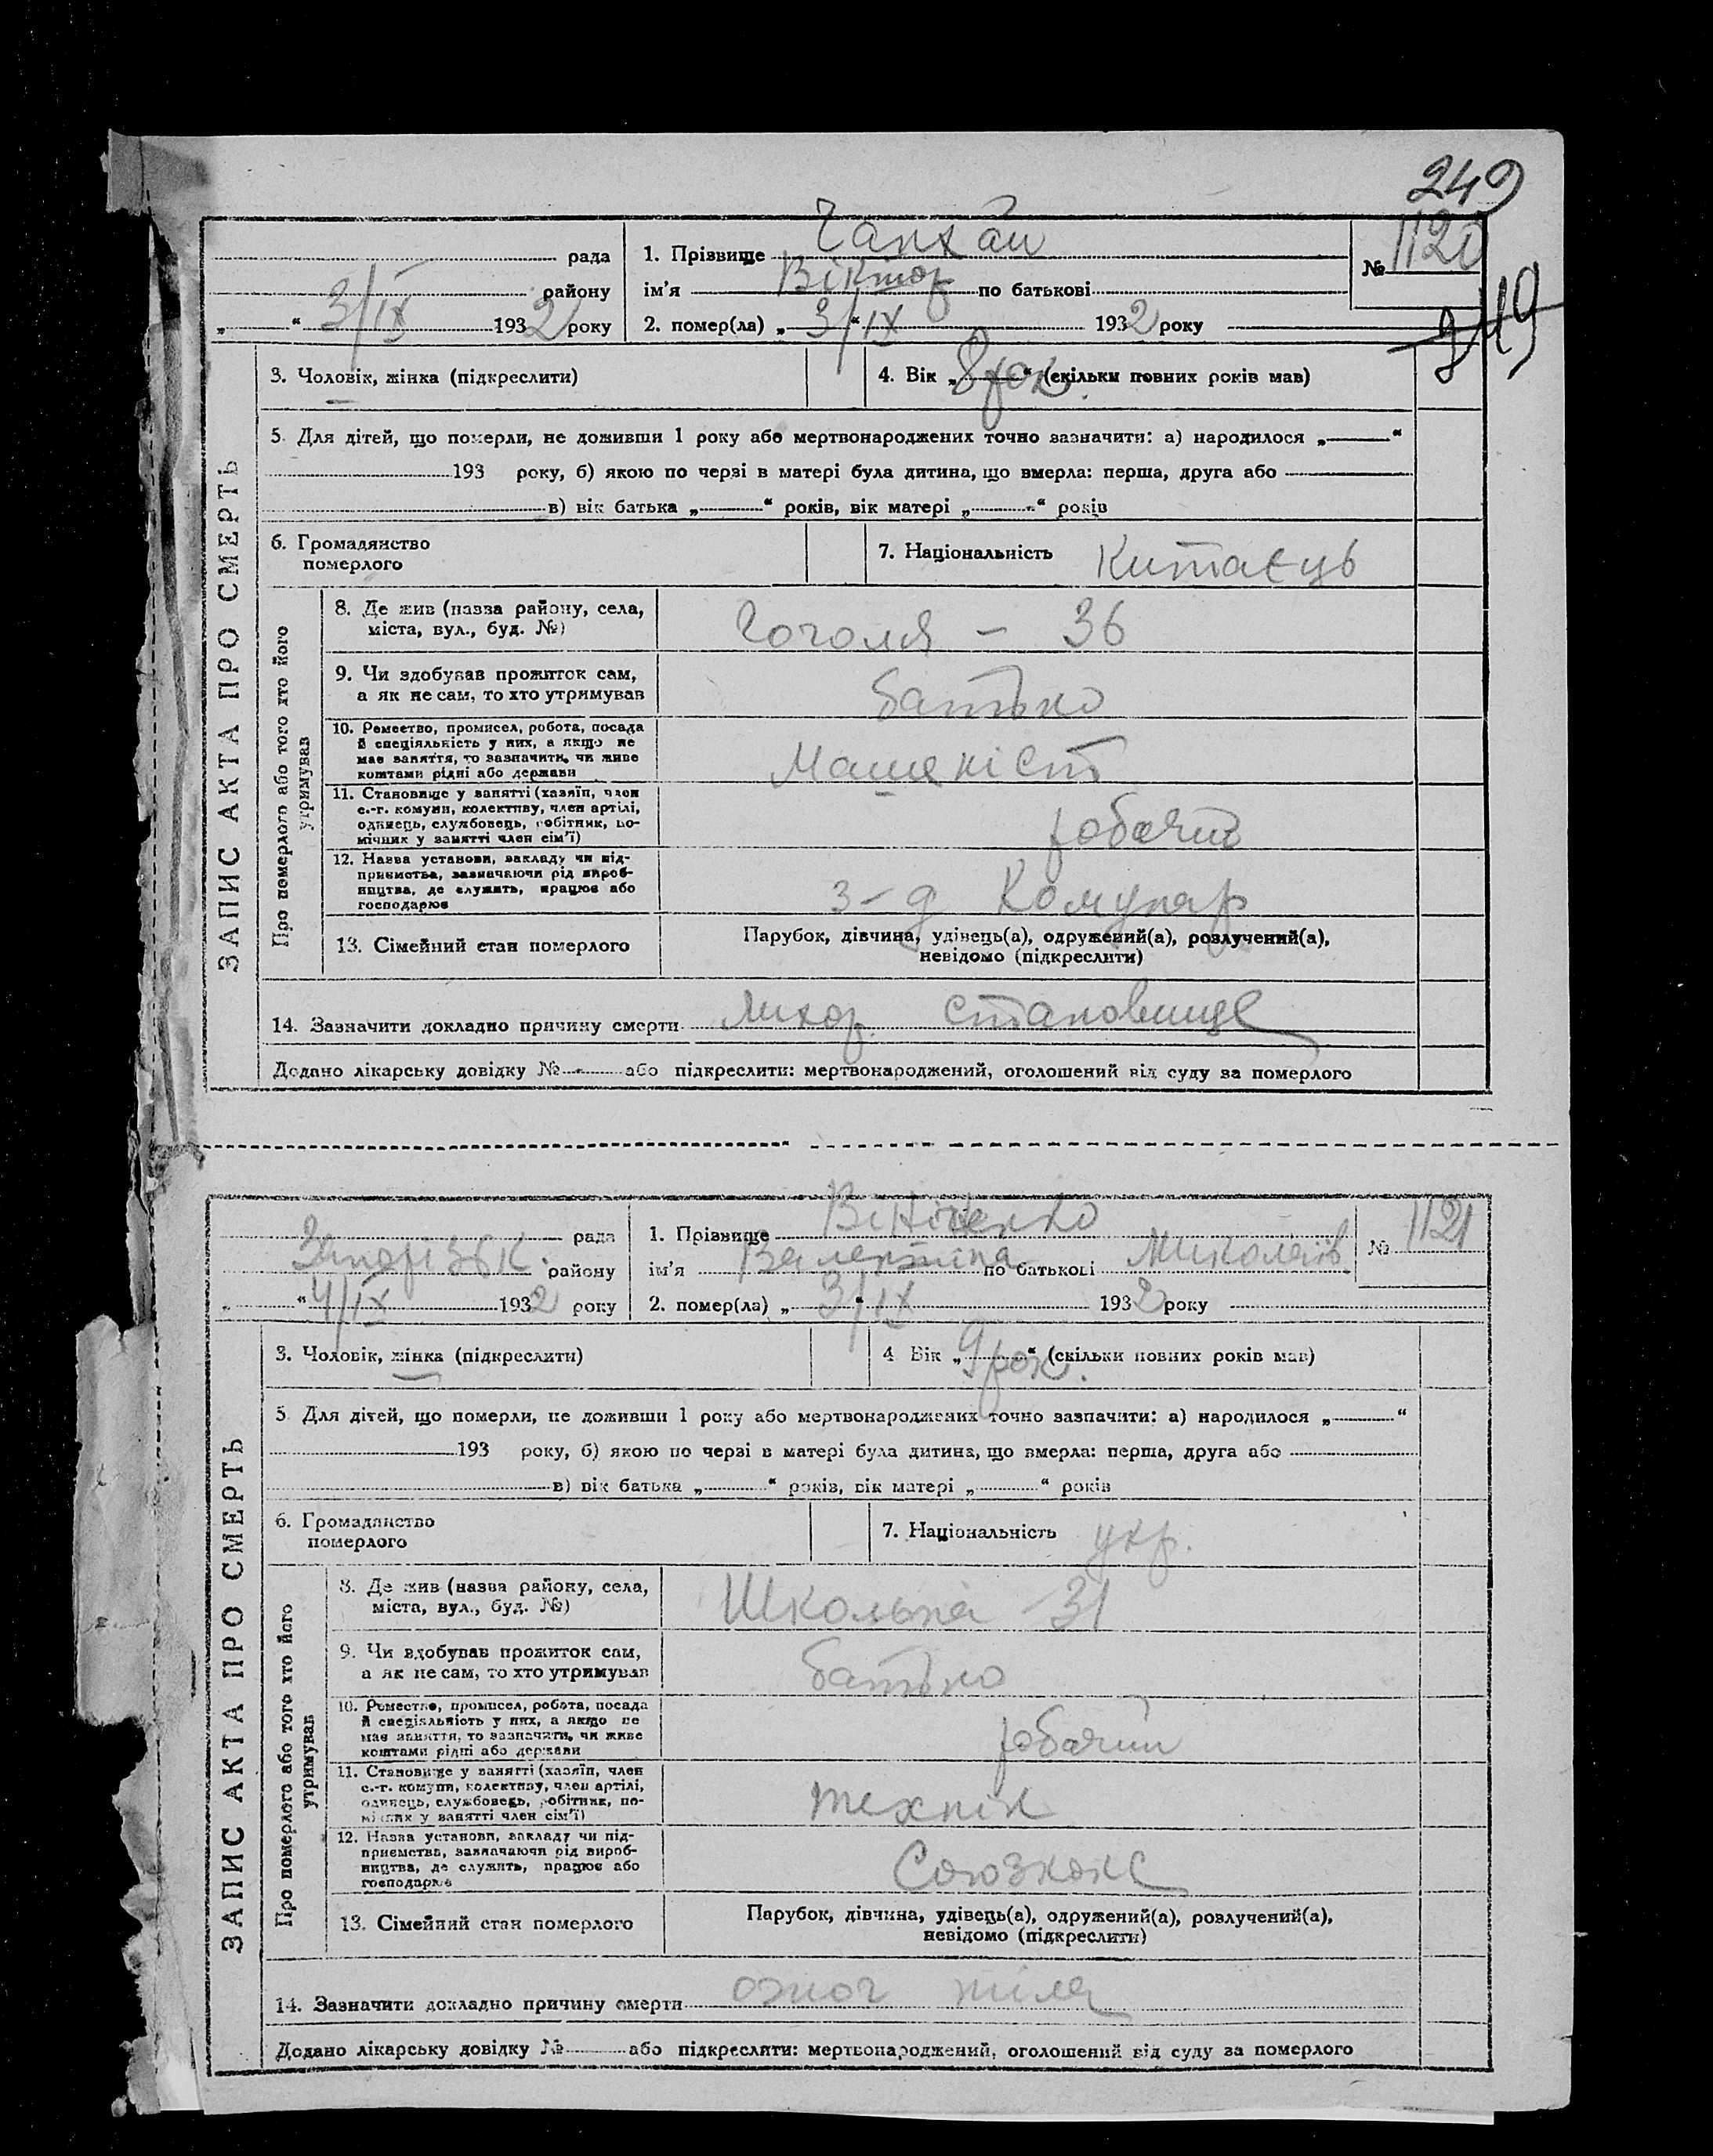 249
рада
району
„ “ 3/IX 1932 року
1. Прізвище Чанхай
ім'я Віктор по батькові
2. помер(ла) „ 3/IX “ 1932 року
№ 1120
249
ЗАПИС АКТА ПРО СМЕРТЬ
3. Чоловік, жінка (підкреслити)
4. Вік „ 8 рок. “ (скільки повних років мав)
5. Для дітей, що померли, не доживши 1 року або мертвонароджених точно зазначити: а) народилося „ “
193 року, б) якою по черзі в матері була дитина, що вмерла: перша, друга або
в) вік батька „ “ років, вік матері „ “ років
6. Громадянство
померлого
7. Національність Китаєць
Про померлого або того хто його
утримував
8. Де жив (назва району, села,
міста, вул., буд. №)
Гоголя – 36
9. Чи здобував прожиток сам,
а як не сам, то хто утримував
батько
10. Ремество, промисел, робота, посада
й спеціяльність у них, а якщо не
має заняття, то зазначити, чи живе
коштами рідні або держави
Машеніст
11. Становище у занятті (хазяїн, член
с.-г. комуни, колективу, член артілі,
одинець, службовець, робітник, по-
мічник у занятті член сім'ї)
робачий
12. Назва установи, закладу чи під-
приємства, зазначаючи рід вироб-
ництва, де служить, працює або
господарює
з-д Комунар
13. Сімейний стан померлого
Парубок, дівчина, удівець(а), одружений(а), розлучений(а),
невідомо (підкреслити)
14. Зазначити докладно причину смерти Лихор. становище
Додано лікарську довідку № або підкреслити: мертвонароджений, оголошений від суду за померлого
рада
Запорізьк. району
„ “ 4/IX 1932 року
1. Прізвище
ім'я Валентина по батькові Миколаїв
2. помер(ла) „ 3/IX “ 1932 року
№ 1121
ЗАПИС АКТА ПРО СМЕРТЬ
3. Чоловік, жінка (підкреслити)
4 Вік „ 9 рок. “ (скільки повних років мав)
5. Для дітей, що померли, не доживши 1 року або мертвонароджених точно зазначити: а) народилося „ “
193 року, б) якою по черзі в матері була дитина, що вмерла: перша, друга або
в) вік батька „ “ років, вік матері „ “ років
6. Громадянство
померлого
7. Національність укр.
Про померлого або того хто його
утримував
8. Де жив (назва району, села,
міста, вул., буд. №)
Школьна 31
9. Чи здобував прожиток сам,
а як не сам, то хто утримував
батько
10. Ремество, промисел, робота, посада
й спеціяльність у них, а якщо не
має заняття, то зазначити, чи живе
коштами рідні або держави
робачий
11. Становище у занятті (хазяїн, член
с.-г. комуни, колективу, член артілі,
одинець, службовець, робітник, по-
мічник у занятті член сім'ї)
технік
12. Назва установи, закладу чи під-
приємства, зазначаючи рід вироб-
ництва, де служить, працює або
господарює
Союзкокс
13. Сімейний стан померлого
Парубок, дівчина, удівець(а), одружений(а), розлучений(а),
невідомо (підкреслити)
14. Зазначити докладно причину смерти ожог тіла
Додано лікарську довідку № або підкреслити: мертвонароджений, оголошений від суду за померлого